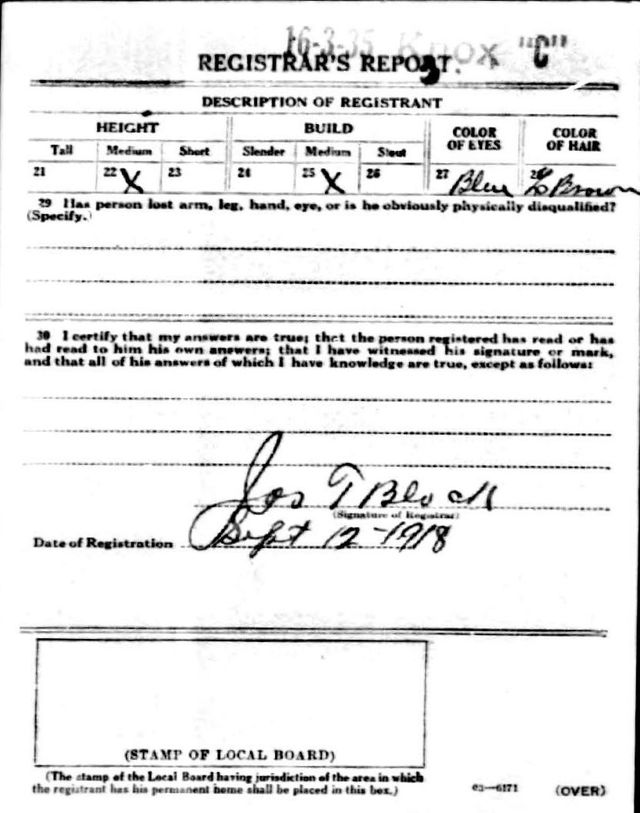 16-3-35 Knox "C"
REGISTRAR'S REPORT.
DESCRIPTION OF REGISTRANT
HEIGHT BUILD COLOR OF EYES COLOR OF HAIR
Tall Medium Short Slender Medium Stout
21 22 X 23 24 25 X 26 27 Blue 28 L Brown
29 Has person lost arm, leg, hand, eye, or is he obviously physically disqualified?
(Specify.)
30 I certify that my answers are true; that the person registered has read or has
had read to him his own answers; that I have witnessed his signature or mark,
and that all of his answers of which I have knowledge are true, except as follows:
Jos T Block
(Signature of Registrar)
Date of Registration Sept 12-1918
(STAMP OF LOCAL BOARD)
(The stamp of the Local Board having jurisdiction of the area in which
the registrant has his permanent home shall be placed in this box.)
03—6171 (OVER)